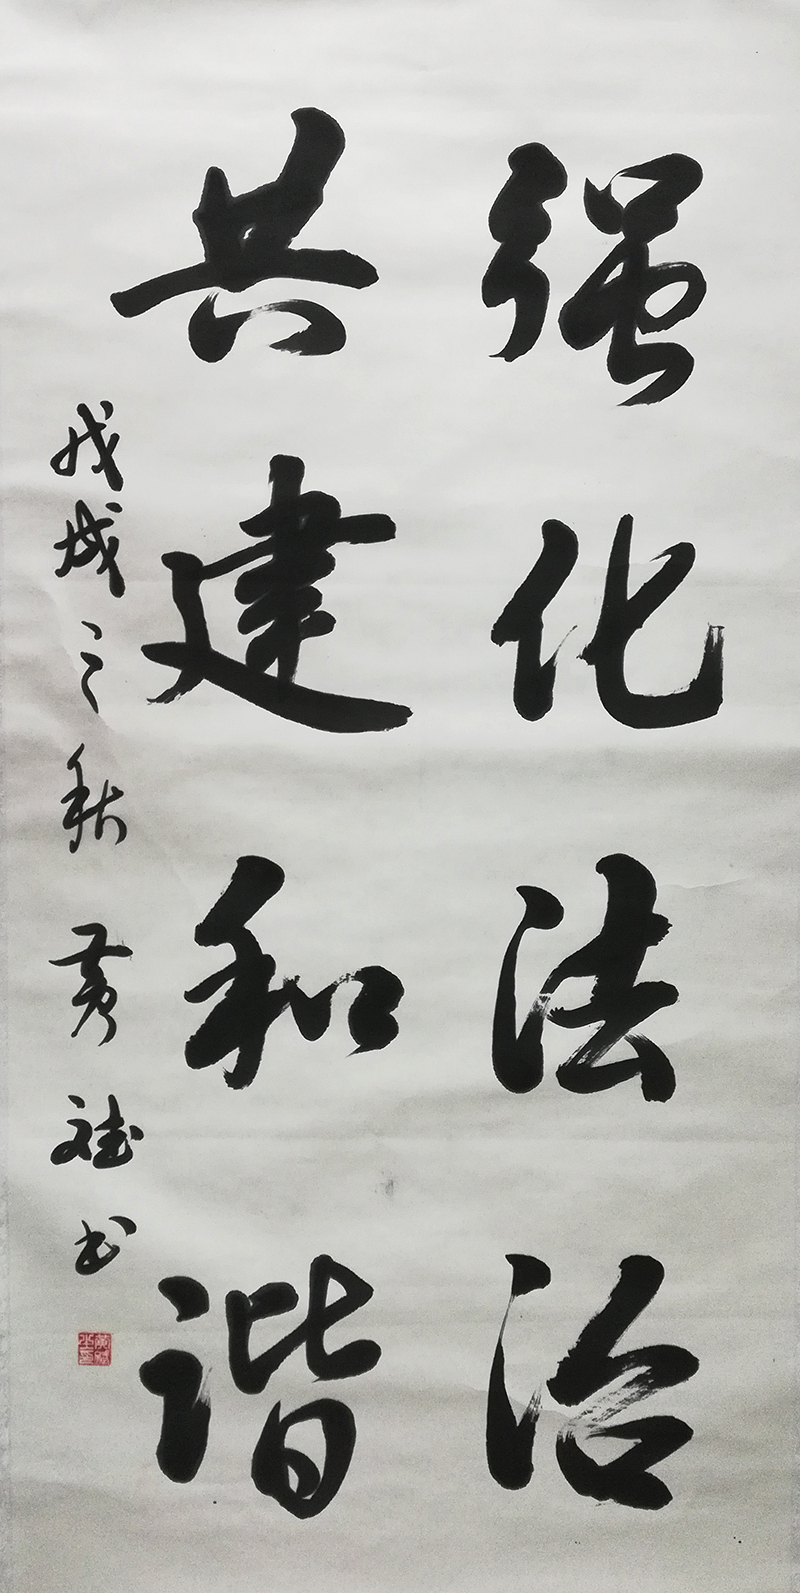 强化法治
共建和谐
戊戌之秋 黄斌书